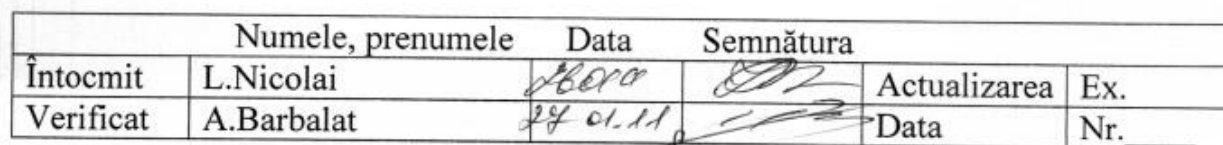 Numele, prenumele Data Semnătura
Întocmit L.Nicolai Actualizarea Ex.
Verificat A.Barbalat 27 01.11 Data Nr.